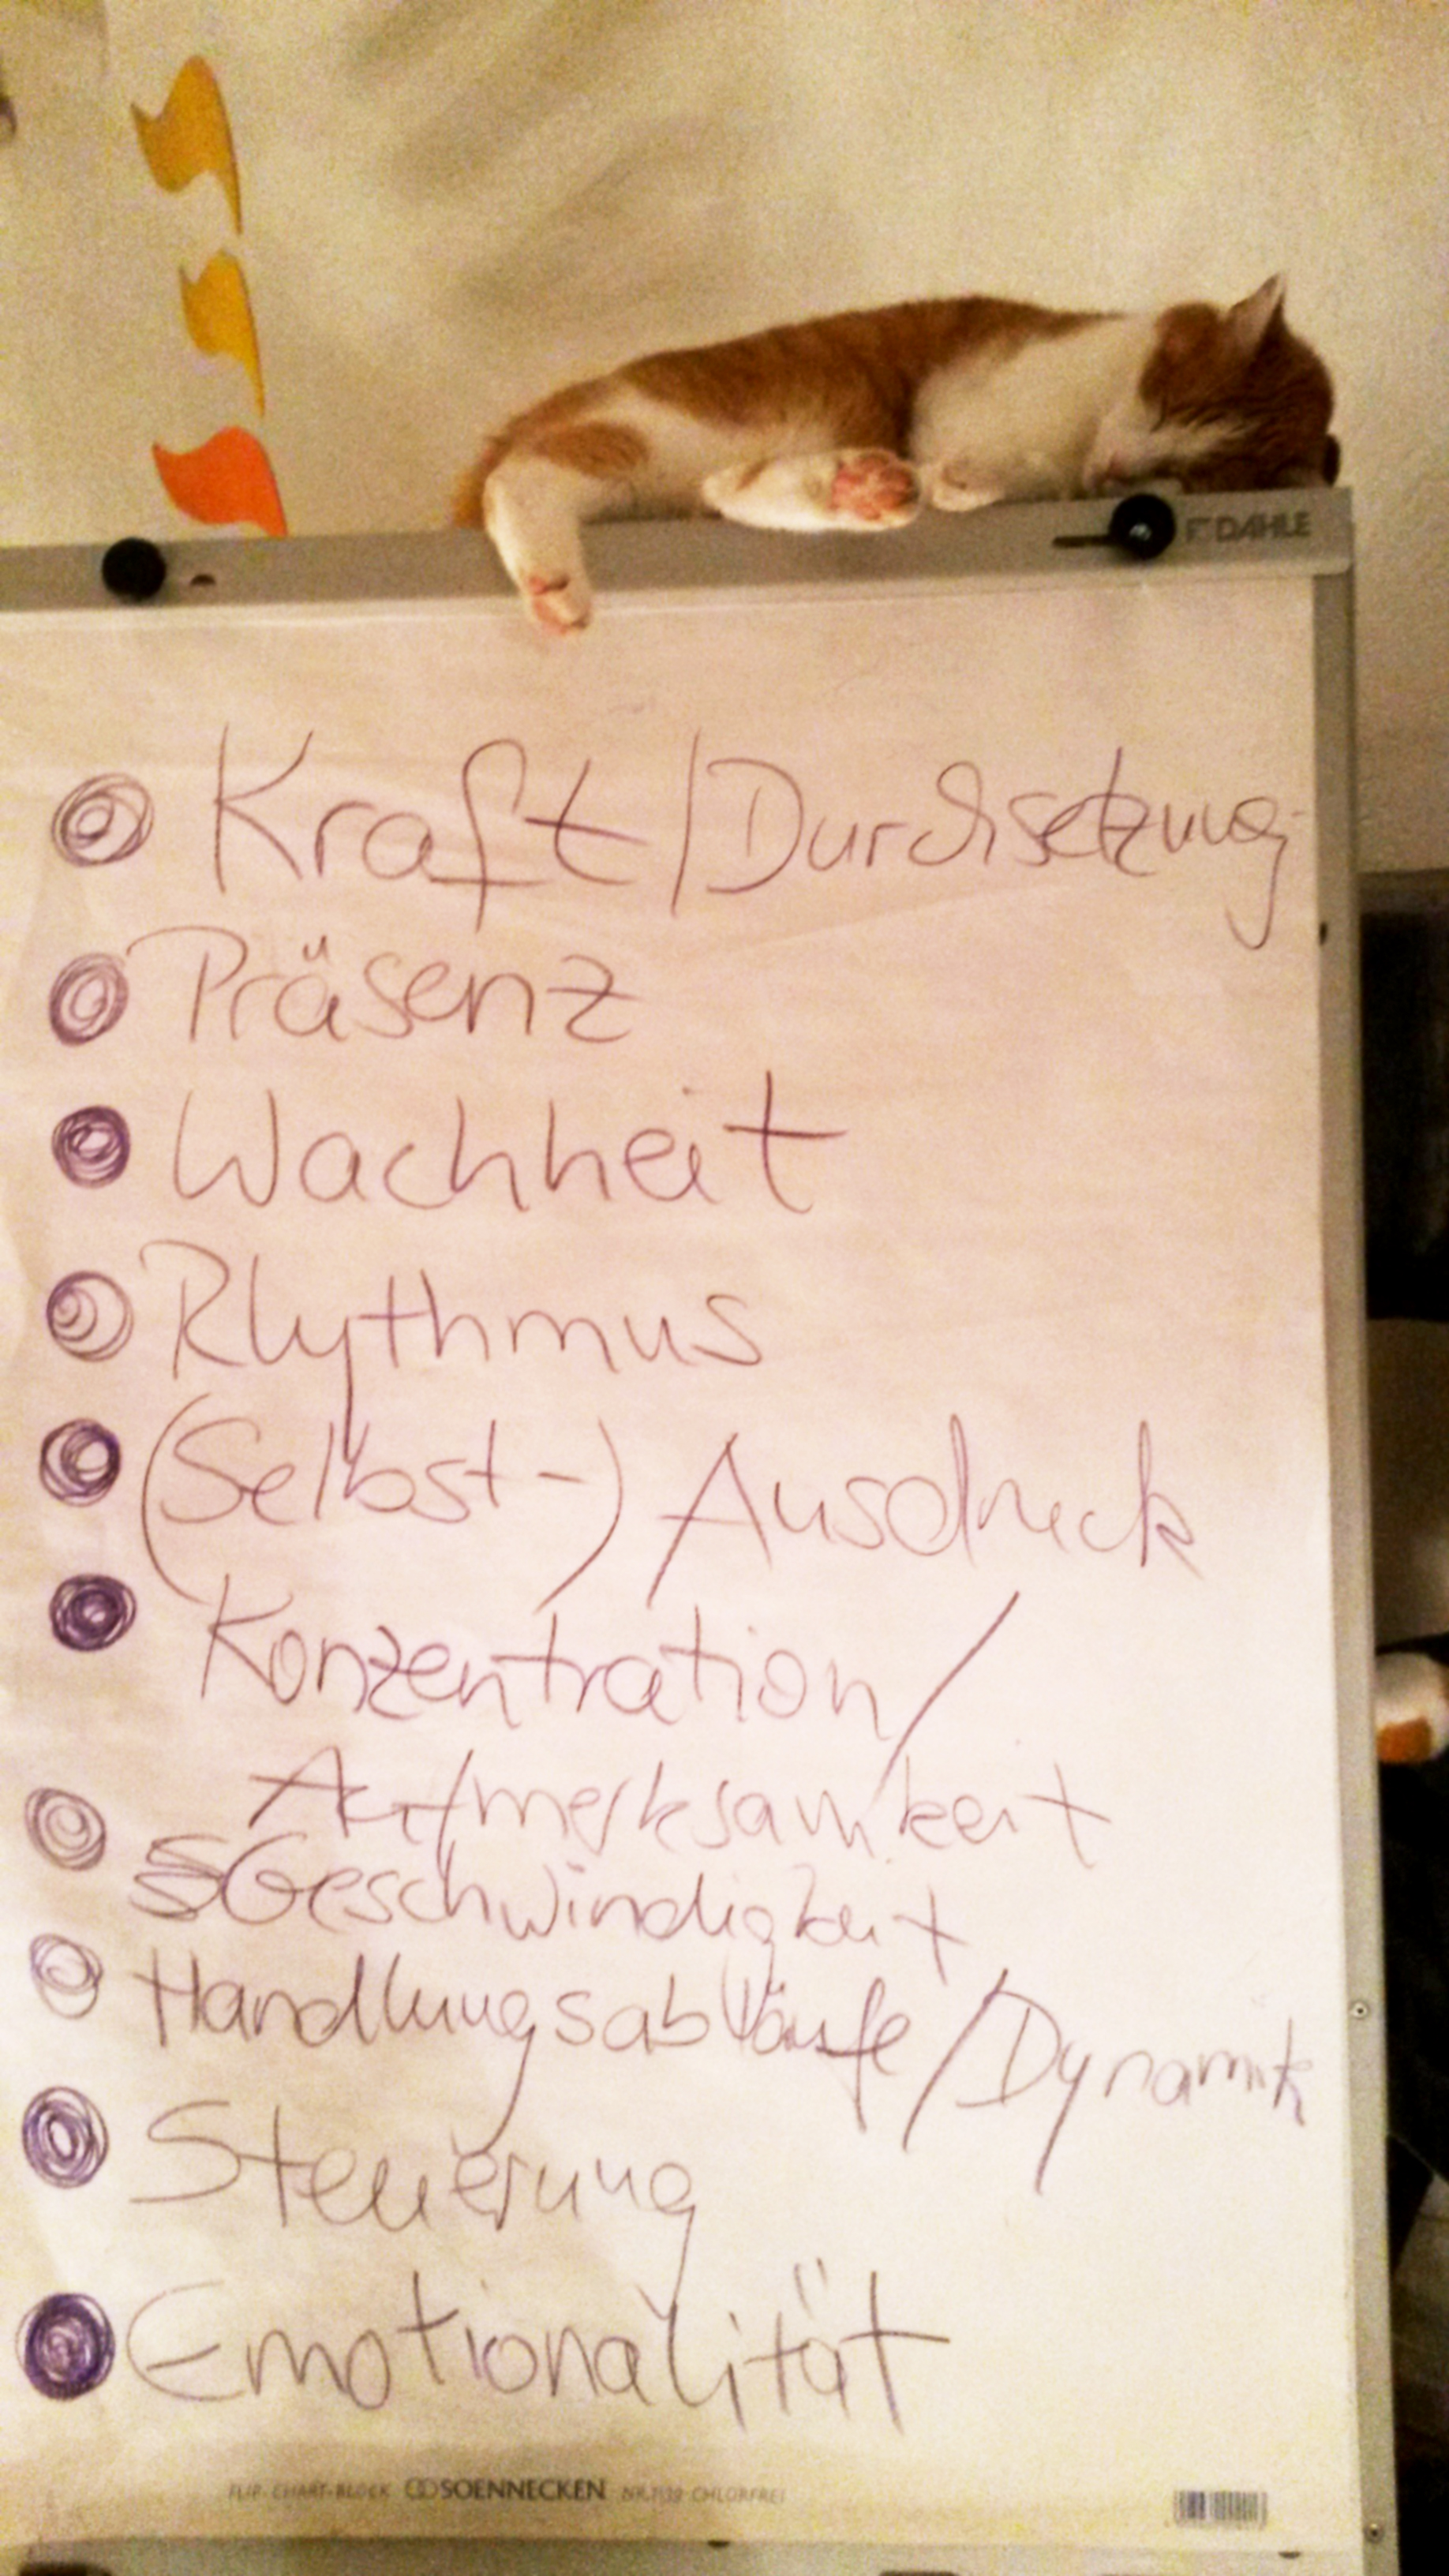 DAHLE
Kraft/Durchsetzung
Präsenz
Wachheit
Rhythmus
(Selbst-) Ausdruck
Konzentration/
Aufmerksamkeit
Geschwindigkeit
Handlungsabläufe/Dynamik
Steuerung
Emotionalität
FLIP-CHART-BLOCK SOENNECKEN CHLORFREI